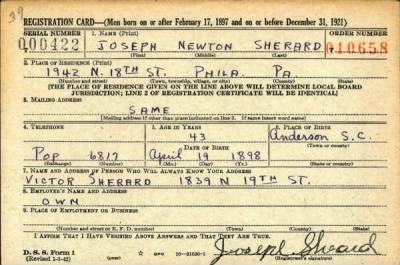 39
REGISTRATION CARD—(Men born on or after February 17, 1897 and on or before December 31, 1921)
SERIAL NUMBER 1. NAME (Print) ORDER NUMBER
000422 JOSEPH NEWTON SHERARD 010658
(First) (Middle) (Last)
2. PLACE OF RESIDENCE (Print)
1942 N. 18TH ST. PHILA. PA.
(Number and street) (Town, township, village, or city) (County) (State)
[THE PLACE OF RESIDENCE GIVEN ON THE LINE ABOVE WILL DETERMINE LOCAL BOARD
JURISDICTION; LINE 2 OF REGISTRATION CERTIFICATE WILL BE IDENTICAL]
3. MAILING ADDRESS
SAME
[Mailing address if other than place indicated on line 2. If same insert word same]
4. TELEPHONE 5. AGE IN YEARS 6. PLACE OF BIRTH
43 Anderson S.C.
DATE OF BIRTH (Town or county)
POP 6817 April 19 1898
(Exchange) (Number) (Mo.) (Day) (Yr.) (State or country)
7. NAME AND ADDRESS OF PERSON WHO WILL ALWAYS KNOW YOUR ADDRESS
VICTOR SHERARD 1839 N 19TH ST.
8. EMPLOYER'S NAME AND ADDRESS
OWN
9. PLACE OF EMPLOYMENT OR BUSINESS
(Number and street or R. F. D. number) (Town) (County) (State)
I AFFIRM THAT I HAVE VERIFIED ABOVE ANSWERS AND THAT THEY ARE TRUE.
D. S. S. Form 1
(Revised 1-1-42) GPO 16—21630-1 Joseph Sherard
(Registrant's signature)